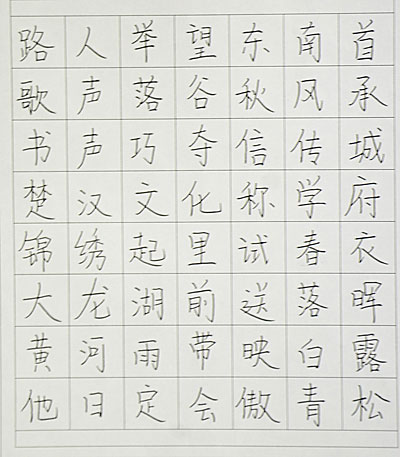 路人举望东南首
歌声落谷秋风承
书声巧夺信传城
楚汉文化称学府
锦绣起里试春衣
大龙湖前送落晖
黄河雨带映白露
他日定会傲青松